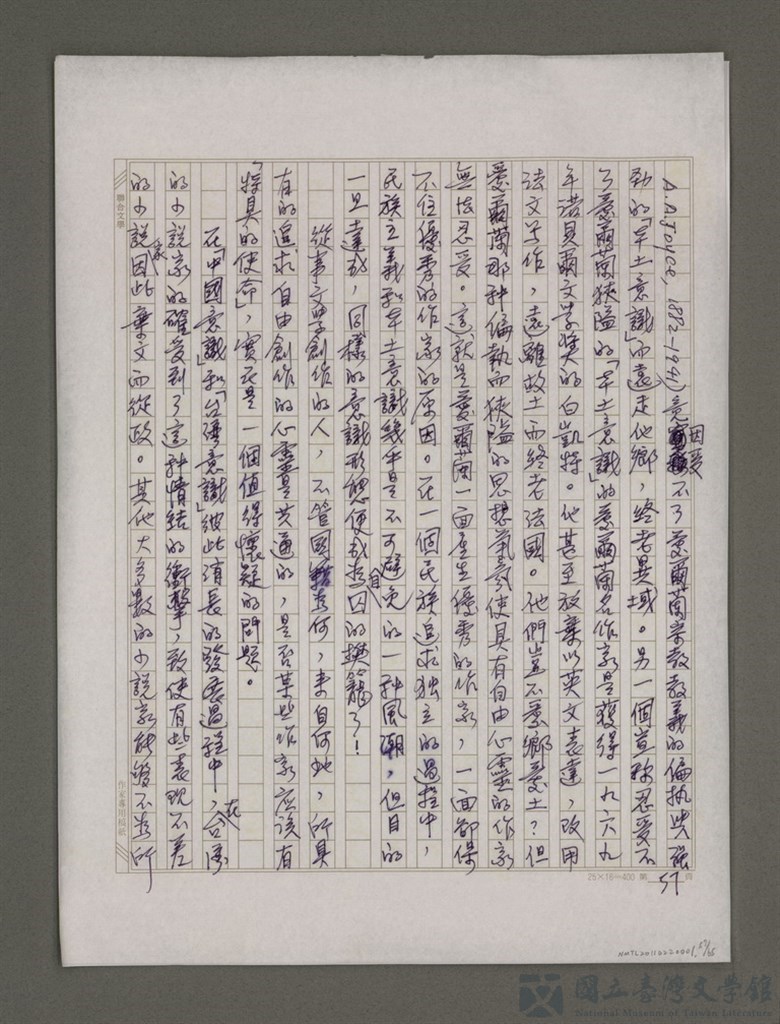 A.A.Joyce, 1882-1941)竟因受不了愛爾蘭宗教教義的偏執與強
勁的「本土意識」而遠走他鄉,終老異域。另一個宣稱忍受不
了愛爾蘭狹隘的「本土意識」的愛爾蘭名作家是獲得一九六九
年諾貝爾文學獎的白凱特。他甚至放棄以英文表達,改用
法文寫作,遠離故土而終老法國。他們豈不愛鄉愛土?但
愛爾蘭那种偏執而狹隘的思想氣氛使具有自由心靈的作家
無法忍受。這就是愛爾蘭一面產生優秀的作家,一面卻保
不住優秀的作家的原因。在一個民族追求独立的過程中,
民族主義和本土意識幾乎是不可避免的一种風潮,但目的
一旦達成,同樣的意識形態便成為自囚的樊籠了!
從事文學創作的人,不管國籍為何,來自何地,所具
有的追求自由創作的心靈是共通的,是否某些作家应該有
「特具的使命」,實在是一個值得懷疑的問題。
在「中國意識」和「台灣意識」彼此消長的發展過程中,在台灣
的小說家的確受到了這种情結的衝擊,致使有些表現不差
的小說家因此棄文而從政。其他大多數的小說家能够不為所
聯合文學
作家專用稿紙
25×16=400 第57頁
NMTL20110220001 57/65
國立臺灣文學館
National Museum of Taiwan Literature